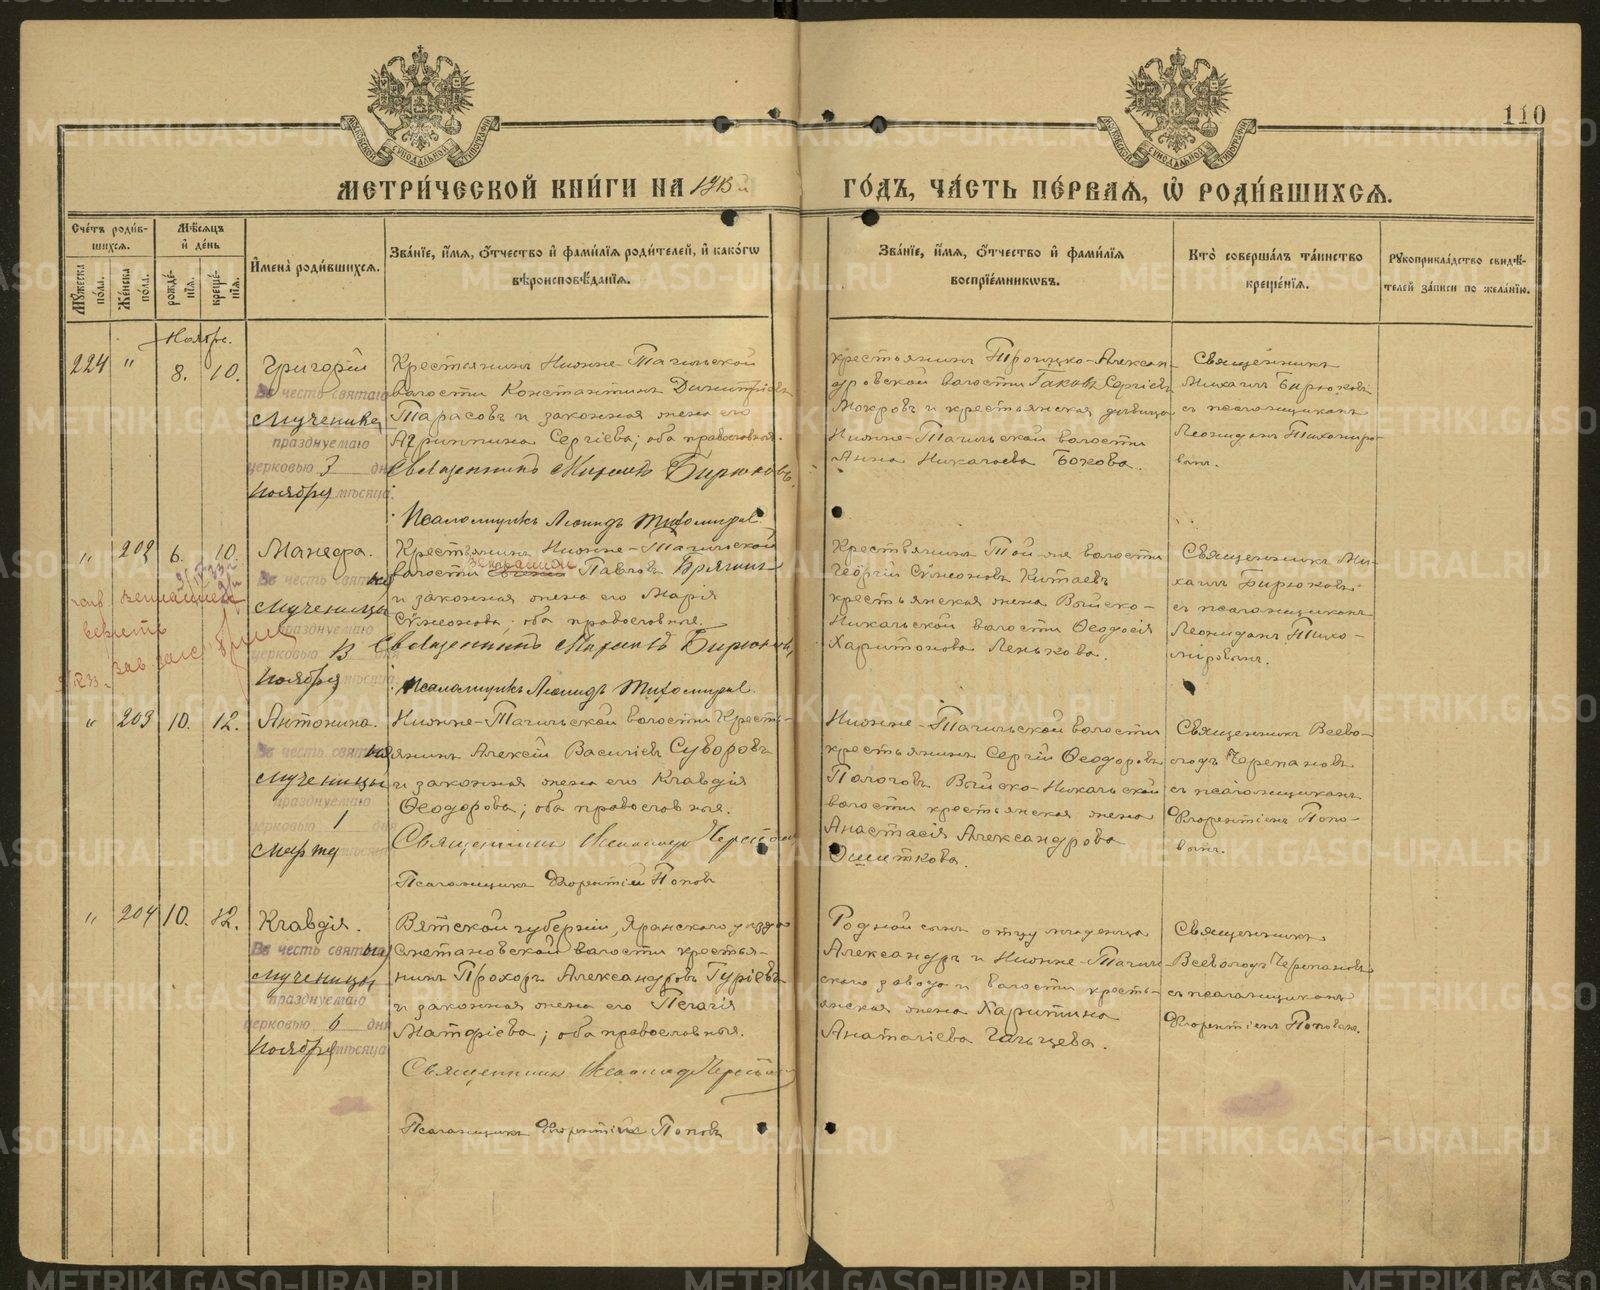 110
МОСКОВСКОЙ СѴНОДАЛЬНОЙ ТИПОГРАФІИ
МОСКОВСКОЙ СѴНОДАЛЬНОЙ ТИПОГРАФІИ
МЕТРИ́ЧЕСКОЙ КНИ́ГИ НА 1913й
ГО́ДЪ, ЧА́СТЬ ПЕ́РВАЯ, Ѽ РОДИ́ВШИХСЯ.
Сче́тъ роди́в-
шихся.
Мꙋ́жеска по́ла.
Же́нска по́ла.
Мѣ́сяцъ
и҆ де́нь
рожде́-
нїя.
креще́-
нїя.
И҆мена̀ роди́вшихся.
Зва́нїе, и҆́мя, ѻ҆́тчество и҆ фами́лїя роди́телей, и҆ како́гѡ
вѣроисповѣ́данїя.
Зва́нїе, и҆́мя, ѻ҆́тчество и҆ фами́лїя
воспрїе́мникѡвъ.
Кто̀ соверша́лъ та́инство
креще́нїя.
Рꙋкоприкла́дство свидѣ́-
телей за́писи по жела́нїю.
Ноябрь.
224 " 8. 10.
Григорій
Въ честь святаго
Мученика
празднуемаго
церковью 3 дня
Ноября мѣсяца.
Крестьянинъ Нижне-Тагильской
волости Константинъ Димитріевъ
Тарасовъ и законная жена его
Агриппина Сергіева; оба православные.
Священникъ Михаилъ Бирюковъ.
Псаломщикъ Леонидъ Тихомировъ.
крестьянинъ Троицко-Алексан-
дровской волости Іаковъ Сергіевъ
Мокровъ и крестьянская дѣвица
Нижне-Тагильской волости
Анна Николаева Божова.
Священникъ
Михаилъ Бирюковъ
съ псаломщикомъ
Леонидомъ Тихомиро-
вымъ.
" 202 6. 10.
Манефа.
Въ честь святыя
мученицы
празднуемаго
церковью 13 дня
Ноября мѣсяца.
Крестьянинъ Нижне-Тагильской
волости Павловъ Брягинъ
и законная жена его Марія
Сѵмеонова; оба православные.
Священникъ Михаилъ Бирюковъ,
Псаломщикъ Леонидъ Тихомировъ.
Крестьянинъ Той-же волости
Георгій Сѵмеоновъ Китаевъ
крестьянская жена Выйско-
Никольской волости Ѳеодосія
Харитонова Ленькова.
Священникъ Ми-
хаилъ Бирюковъ
съ псаломщикомъ
Леонидомъ Тихо-
мировымъ.
" 203 10. 12.
Антонина.
Въ честь святыя
мученицы
празднуемаго
церковью 1 дня
Марта мѣсяца
Нижне-Тагильской волости Кресть-
янинъ Алексій Василіевъ Суворовъ
и законная жена его Клавдія
Ѳеодорова; оба православныя.
Священникъ Всеволодъ Черепановъ
Псаломщикъ Флорентій Поповъ
Нижне-Тагильской волости
крестьянинъ Сергій Ѳеодоровъ
Пологовъ Выйско-Никольской
волости крестьянская жена
Анастасія Александрова
Ошиткова.
Священникъ Всево-
лодъ Черепановъ
съ псаломщикомъ
Флорентіемъ Попо-
вымъ.
" 204 10. 12.
Клавдія.
Въ честь святыя
мученицы
празднуемаго
церковью 6 дня
Ноября мѣсяца
Вятской губерніи, Яранскаго уѣзда
Сметановской волости крестья-
нинъ Прохоръ Александровъ Гуріевъ
и законная жена его Пелагія
Матфіева; оба православныя.
Священникъ Всеволодъ Черепановъ
Псаломщикъ Флорентій Поповъ
Родной сынъ отцу младенца
Александръ и Нижне-Тагиль-
скаго завода и волости кресть-
янская жена Харитина
Анатоліева Гальцева.
Священникъ
Всеволодъ Черепановъ
съ псаломщикомъ
Флорентіемъ Поповымъ.
METRIKI.GASO-URAL.RU